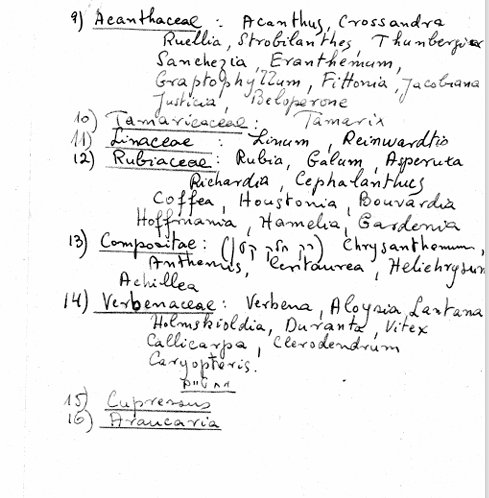 9) Acanthaceae : Acanthus, Crossandra
Ruellia, Strobilanthes, Thunbergia
Sanchezia, Eranthemum,
Graptophyllum, Fittonia, Jacobiana
Justicia, Beloperone
10) Tamaricaceae : Tamarix
11) Linaceae : Linum, Reinwardtio
12) Rubiaceae : Rubia, Galum, Asperuta
Richardia, Cephalanthus
Coffea, Houstonia, Bouvardia
Hoffmania, Hamelia, Gardenia
13) Compositae : (רק חלק קטן) Chrysanthemum,
Anthemis, Centaurea, Helichrysum
Achillea
14) Verbenaceae : Verbena, Aloysia, Lantana
Holmskioldia, Duranta, Vitex
Callicarpa, Clerodendrum
Caryopteris.
15) Cupressus
16) Araucaria